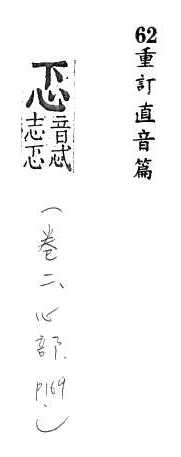 62重訂直音篇
忑
音忒
忐忑
(卷二、心部. P169.)